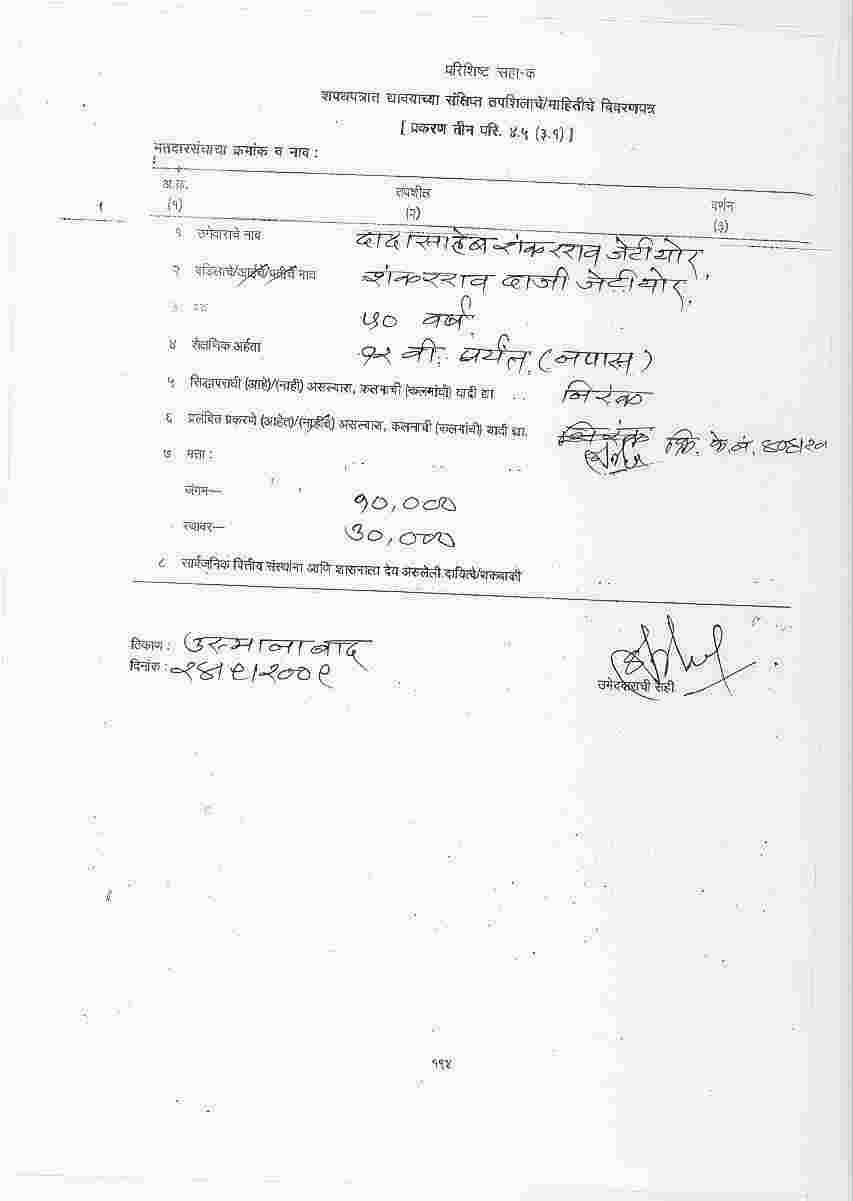 परिशिष्ट सहा-क
शपथपत्रात द्यावयाच्या संक्षिप्त तपशिलाचे/माहितीचे विवरणपत्र
[ प्रकरण तीन परि. ४.५ (३.१) ]
मतदारसंघाचा क्रमांक व नाव :
अ.क्र. तपशील वर्णन
(१) (२) (३)
१ उमेदवाराचे नाव दादासाहेब शंकरराव जेटीथोर.
२ वडिलांचे/आईचे/पतीचे नाव शंकरराव दाजी जेटीथोर.
३ वय ५० वर्ष
४ शैक्षणिक अर्हता १२ वी. पर्यंत (नपास)
५ सिद्धापराधी (आहे)/(नाही) असल्यास, कलमाची (कलमांची) यादी द्या .. निरंक
६ प्रलंबित प्रकरणे (आहेत)/(नाहीत) असल्यास, कलमाची (कलमांची) यादी द्या. निरंक क्रि. के. नं.
७ मत्ता :
जंगम— १०,०००
स्थावर— ३०,०००
८ सार्वजनिक वित्तीय संस्थांना आणि शासनाला देय असलेली दायित्वे/थकबाकी
ठिकाण : उस्मानाबाद
दिनांक : २४/९/२००९
उमेदवाराची सही
११४